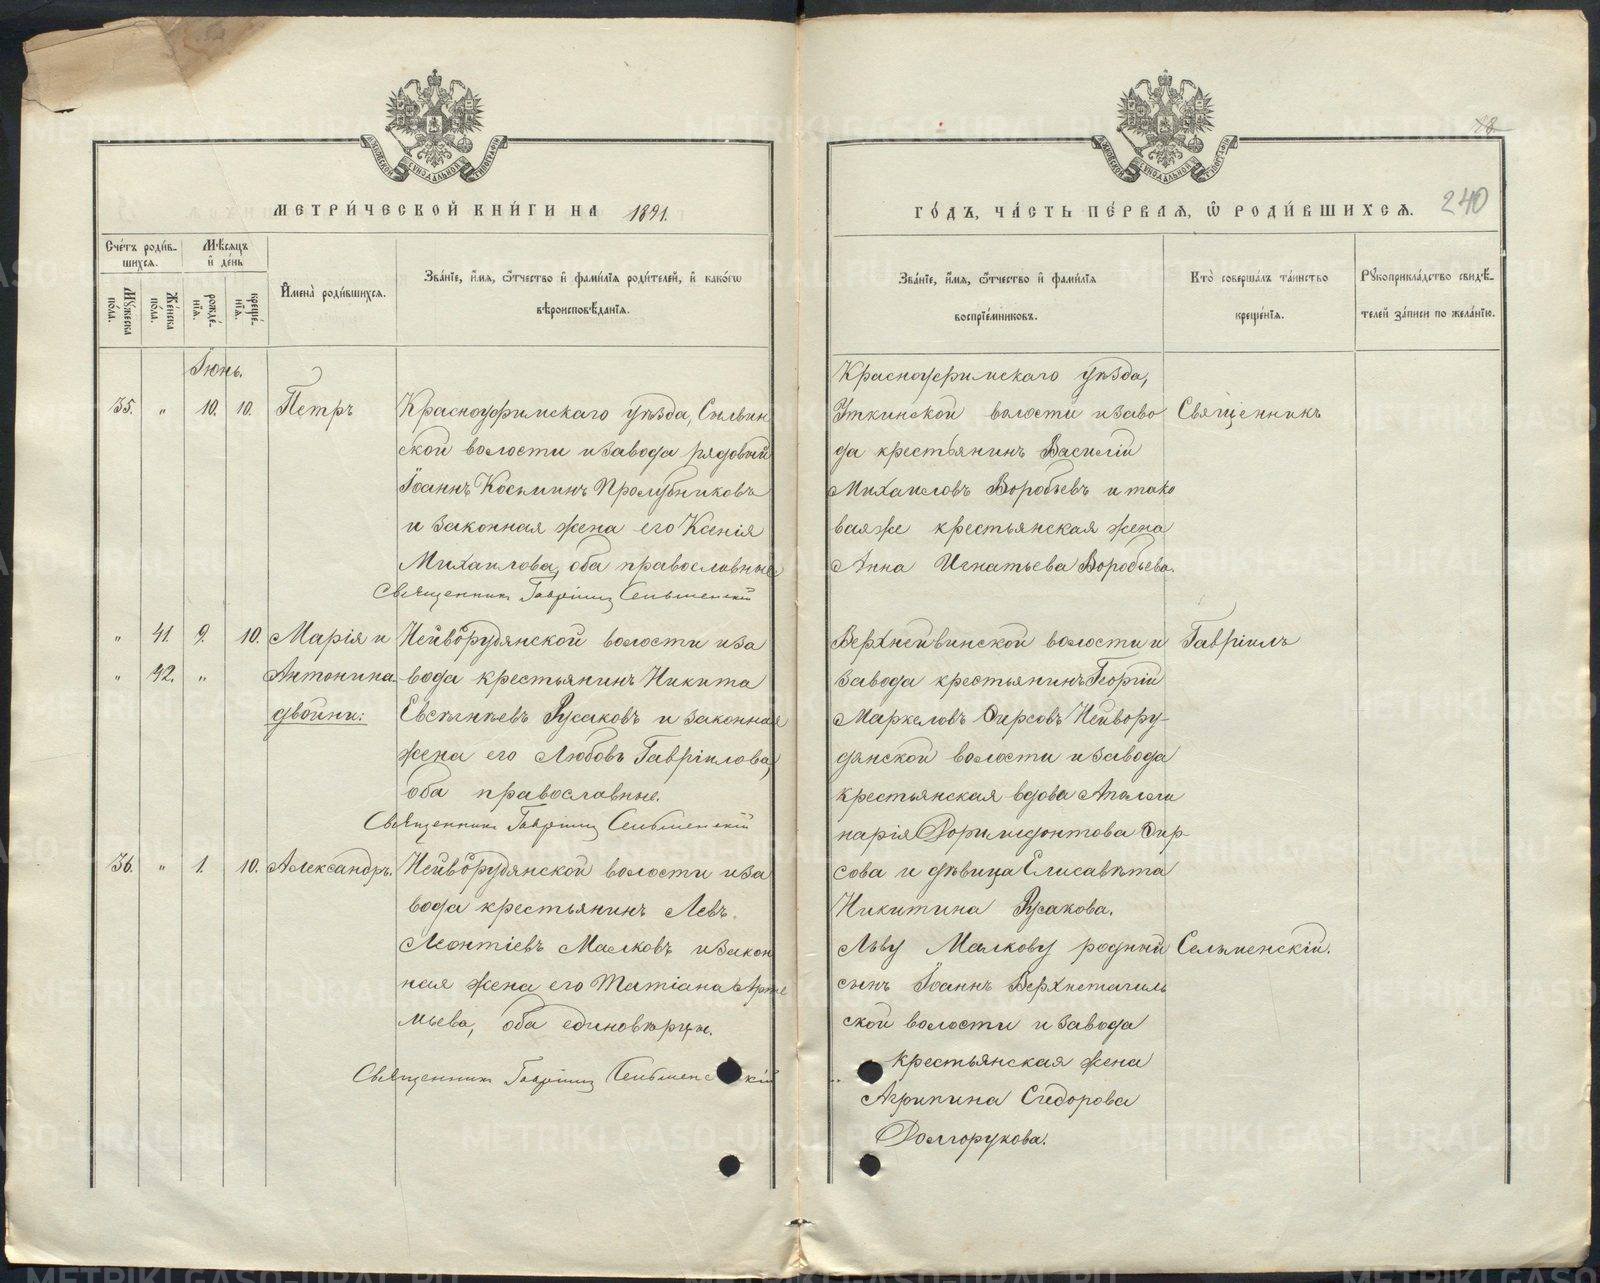 МЕТРИ́ЧЕСКОЙ КНИ́ГИ НА 1891.
Сче́тъ роди́в-
шихсѧ.
Мѣ́сѧцъ
и҆ де́нь
Мꙋ́жеска
по́ла.
Же́нска
по́ла.
рожде́-
нїѧ.
креще́-
нїѧ.
И҆мена̀ роди́вшихсѧ.
Зва́нїе, и҆́мѧ, ѻ҆́тчество и҆ фами́лїѧ роди́телей, и҆ како́гѡ
вѣроисповѣ́данїѧ.
Іюнь.
35. " 10. 10. Петръ
Красноуфимскаго уѣзда, Сылвин
ской волости и завода рядовый
Іоаннъ Космин Пролубниковъ
и законная жена его Ксенія
Михаилова, оба православные
Священник Гавріил Сельменскій
" 41. 9. 10. Марія и
" 42. " Антонина
двойни:
Нейворудянской волости и за
вода крестьянинъ Никита
Евсѣньевъ Русаковъ и законная
жена его Любовь Гавріилова,
оба православные.
Священник Гавріил Сельменскій
36. " 1. 10. Александръ.
Нейворудянской волости и за
вода крестьянинъ Левъ
Леонтіевъ Малковъ и закон
ная жена его Татіана Арте
мьева, оба единовѣрцы.
Священник Гавріил Сельменскій
18
240
ГО́ДЪ, ЧА́СТЬ ПЕ́РВАЯ, Ѡ РОДИ́ВШИХСЯ.
Зва́нїе, и҆́мѧ, ѻ҆́тчество и҆ фами́лїѧ
воспрїе́мниковъ.
Кто̀ соверша́лъ та́инство
креще́нїѧ.
Рꙋкоприкла́дство свидѣ́-
телей за́писи по жела́нїю.
Красноуфимскаго уѣзда,
Уткинской волости и заво
да крестьянинъ Василій
Михаиловъ Воробьевъ и тако
ваяже крестьянская жена
Анна Игнатьева Воробьева.
Верхнейвинской волости и
завода крестьянинъ Георгій
Маркеловъ Фирсовъ Нейвору-
дянской волости и завода
крестьянская вдова Аполи
нарія Доримедонтова Фир-
сова и дѣвица Елисавѣта
Никитина Русакова.
Льву Малкову родный
сынъ Іоаннъ Верхнетагиль
ской волости и завода
крестьянская жена
Агрипина Сидорова
Долгорукова.
Священникъ
Гавріилъ
Сельменскій.